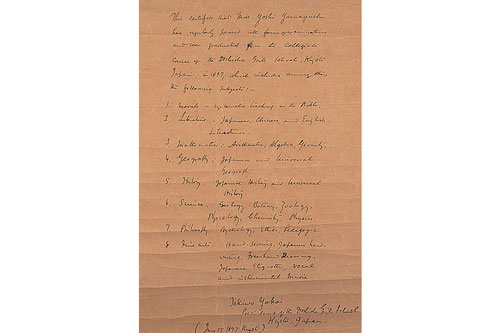 This certifies that Miss Yoshi Yamaguchi
has regularly passed all former examinations
and was graduated from the Collegiate
Course of the Doshisha Girls School, Kyoto
Japan, in 1897, which includes among others
the following subjects:—
1. Morals — systematic teaching in the Bible
2. Literature — Japanese, Chinese, and English
Literature.
3. Mathematics, Arithmetic, Algebra, Geometry.
4. Geography, Japanese and Universal
Geography
5. History Japanese History and Universal
History
6. Science, Geology, Botany, Zoology,
Physiology, Chemistry, Physics
7. Philosophy, Psychology, Ethics, Pedagogic.
8. Fine Arts. Hand-sewing, Japanese hand
writing, Freehand Drawing,
Japanese Etiquette, vocal
and instrumental Music.
Tokiwo Yokoi
President of the Doshisha Girls School
Kyoto, Japan
1897, Kyoto)